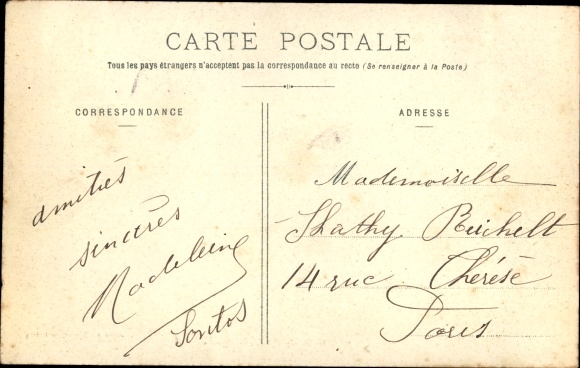 CARTE POSTALE
Tous les pays étrangers n'acceptent pas la correspondance au recto (Se renseigner à la Poste)
CORRESPONDANCE
amitiés
sincères
Madeleine
ADRESSE
Mademoiselle
14 rue Thérèse
Paris